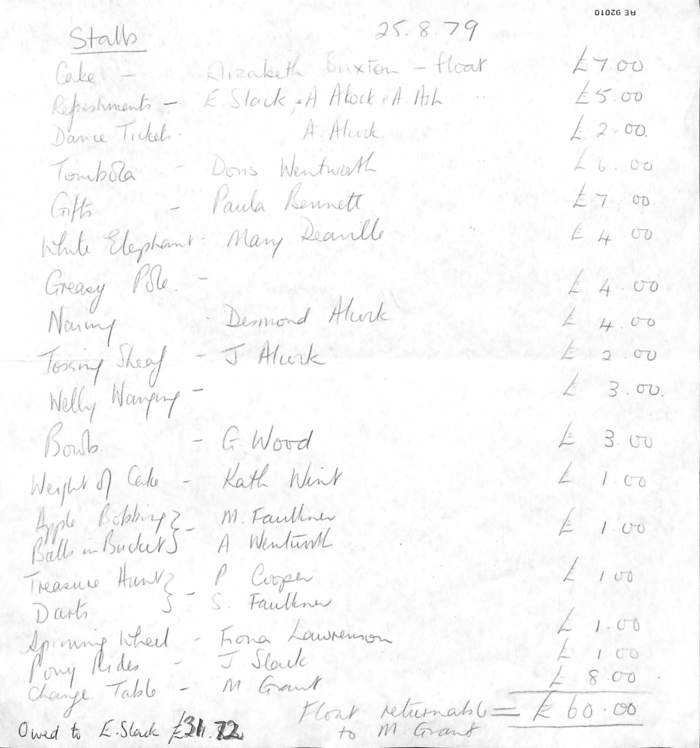 RE 92010
Stalls 25.8.79
Cake - Elizabeth Buxton - float £7.00
Refreshments - E. Slack, A Alcock + A. Ash £5.00
Dance Tickets. A. £2.00.
Tombola - Doris Wentworth £6.00
Gifts - Paula Bennett £7.00
White Elephant - Mary Deaville £4 00
Greasy Pole. - £4.00
Desmond £4.00
Tossing Sheaf - J £2.00
Welly Wanging - £3.00.
Bowls - G. Wood £3.00
Weight of Cake - Kath Wint £1.00
Apple Bobbing } - M. Faulkner £1.00
Balls in Bucket } A Wentworth
Treasure Hunt } - P Cooper £1 00
Darts } S. Faulkner
Spinning Wheel - Fiona Lawrenson £1.00
Pony Rides - J Slack £1 00
Change Table - M. Grant £8.00
Float returnable = £60.00
to M Grant
Owed to E. Slack £31.72